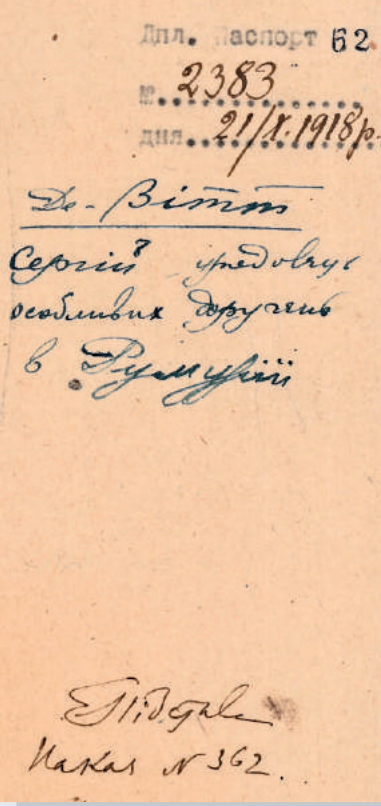 Дпл. Паспорт 62
№. 2383
дня. 21/X.1918р.
Де-Вітт
Сергій
особливих доручень
в Румунії
Наказ N 362.